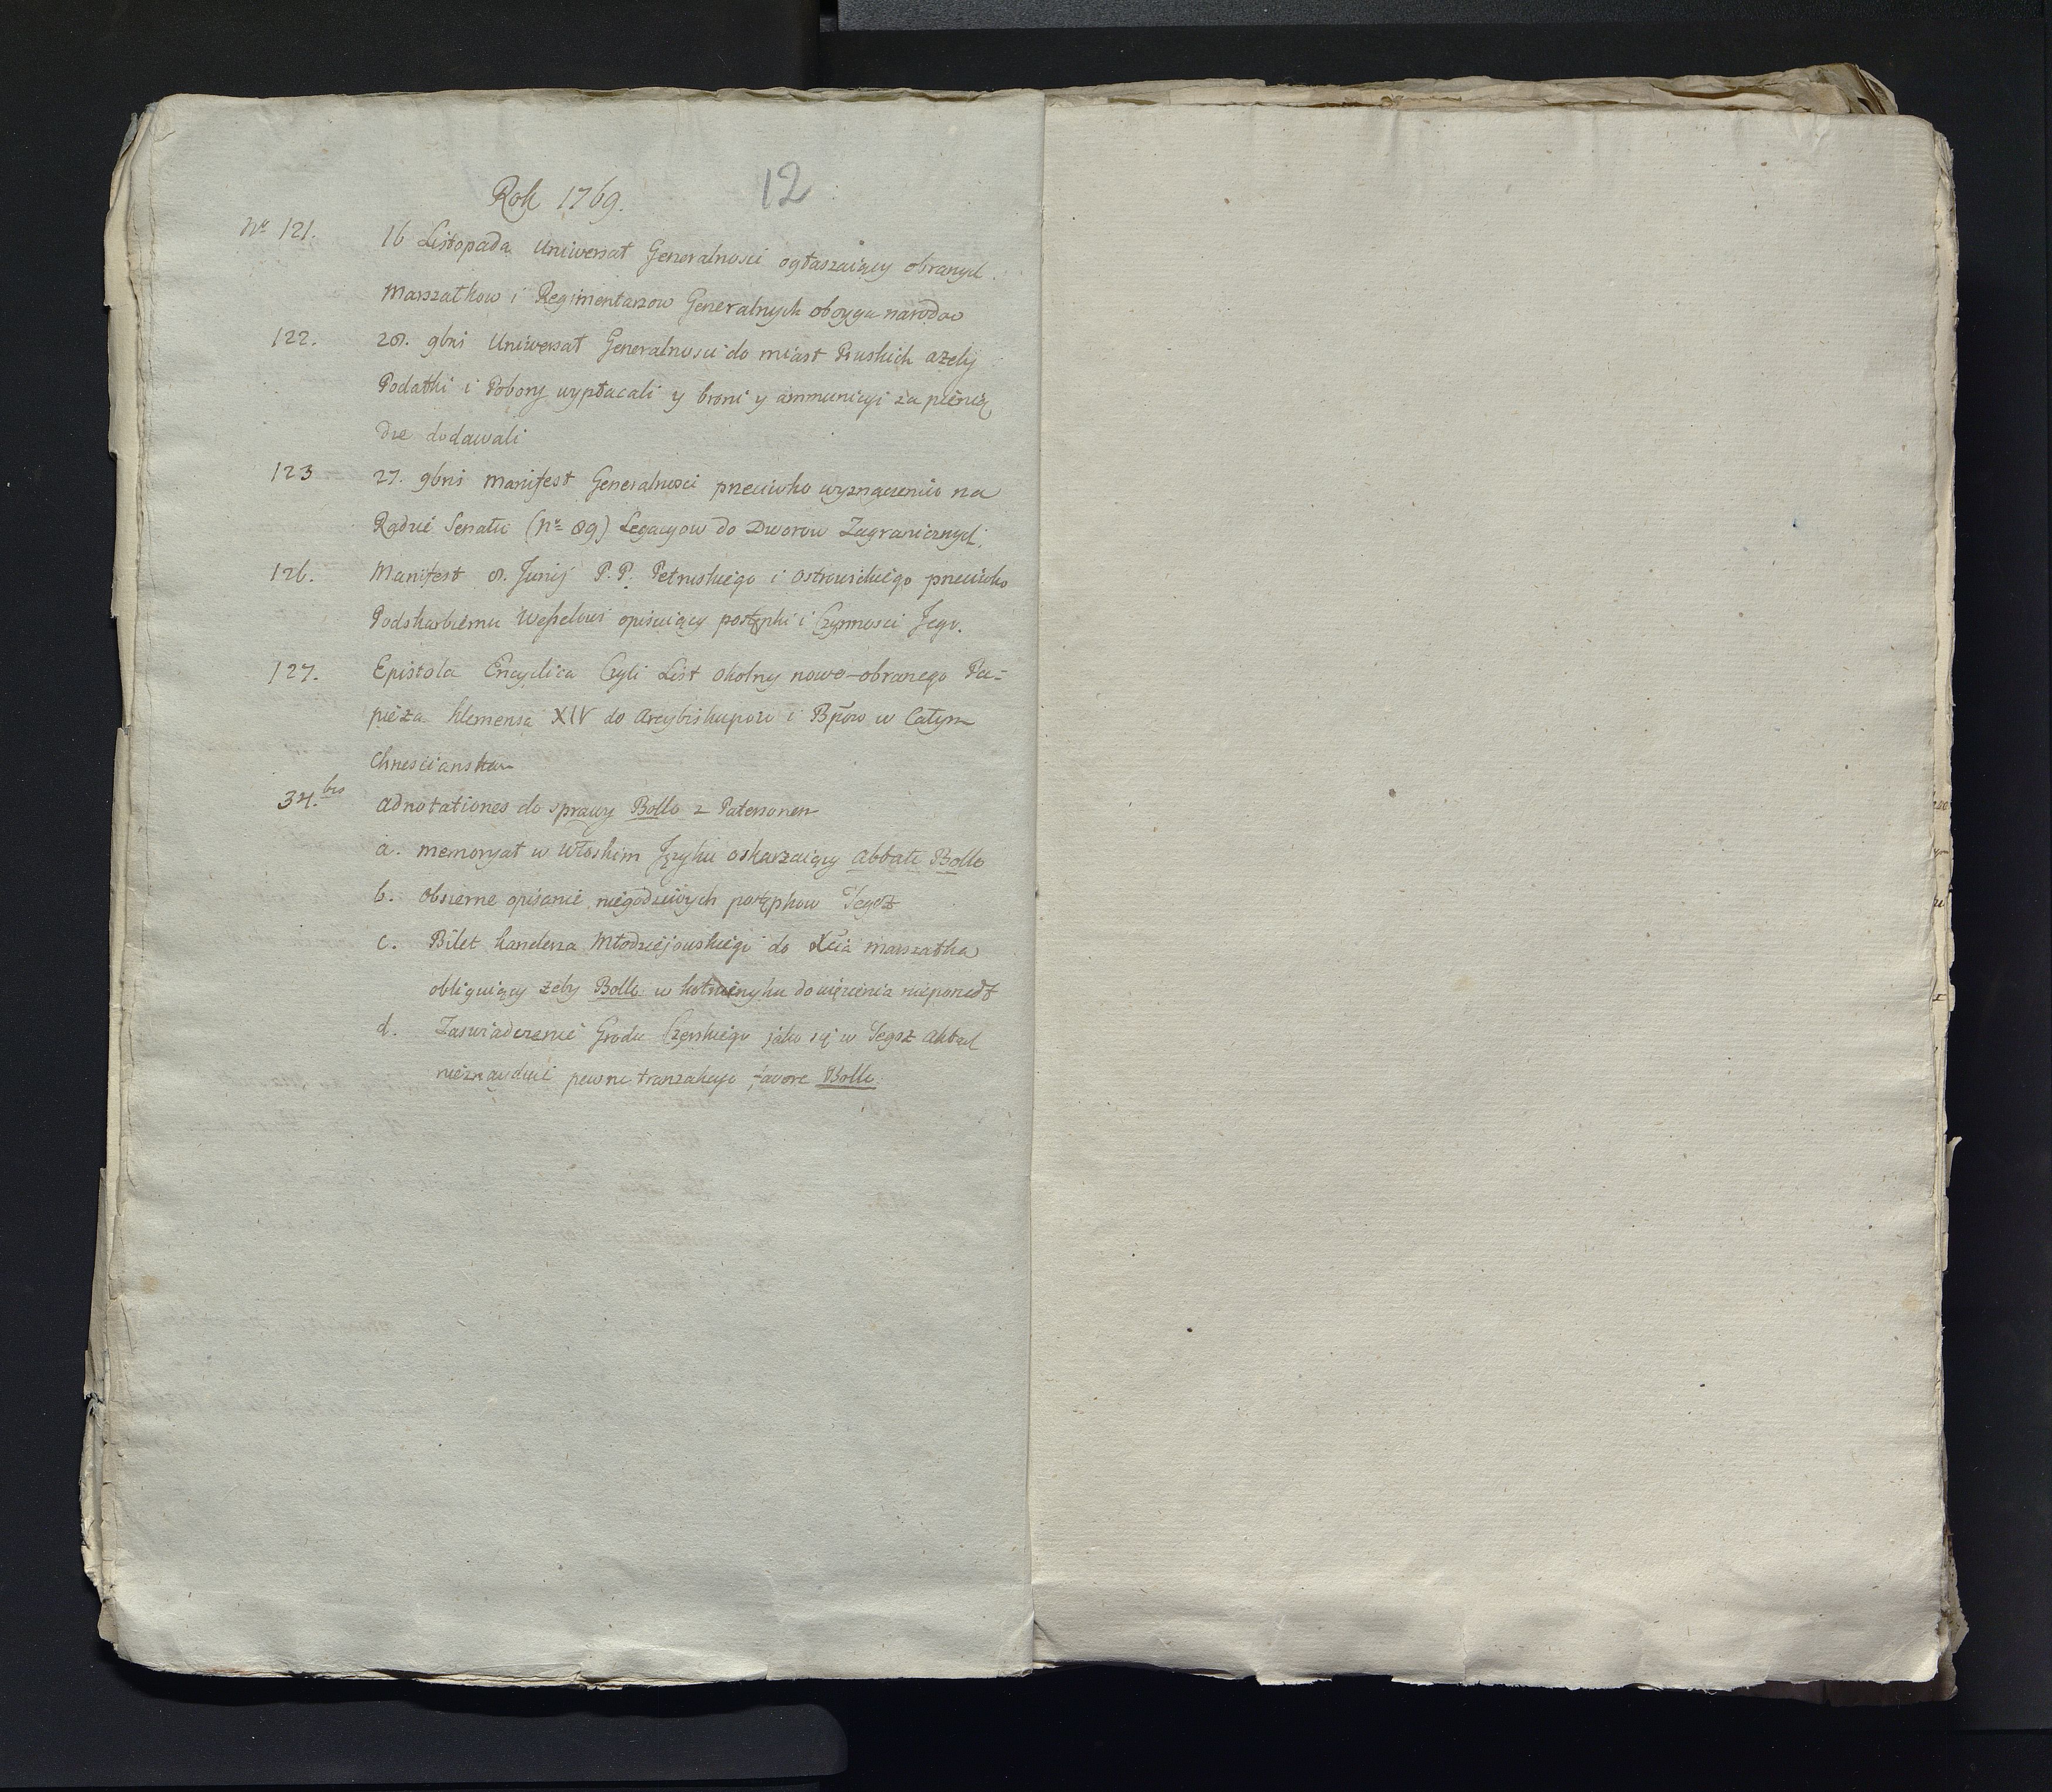 Rok 1769.
12
Nº 121. 16 Listopada Uniwersał Generalnosci ogłaszaiący obranych
Marszałkow i Regimentarzow Generalnych oboyga narodow
122. 28. 9bris Uniwersał Generalnosci do miast Pruskich azeby
Podatki i Pobory wypłacali y broni y ammunicyi za pienią
dze dodawali
123 27. 9bris Manifest Generalnosci przeciwko wyznaczeniu na
Radzie Senatu (Nº 89) Legacyow do Dworow Zagranicznych.
126. Manifest 8. Junij P.P. Petruskiego i Ostrowickiego przeciwko
Podskarbiemu Wesselowi opisuiący postępki i Czynnosci Jego.
127. Epistola Encyclica Czyli List okolny nowo-obranego Pa=
pieża Klemensa XIV do Arcybiskupow i Bpow w Całym
Chrescianstw
34.bis Adnotationes do sprawy Bollo z Patersonem
a. Memoryał w Włoskim Języku oskarzaiący Abbate Bollo
b. Obszerne opisanie niegodziwych postępkow Tegoż
c. Bilet Kanclerza Młodziejowskiego do Xcia Marszałka
obliguiący żeby Bollo w do więzienia nieposzedł
d. Zaswiadczenie Grodu Czerskiego jako się w Tegoż Aktach
nieznayduie pewne tranzakcye favore Bollo